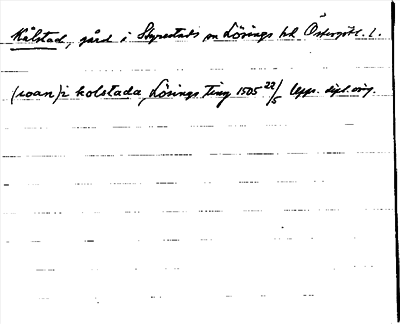 Kålstad, gård i Styrestads sn Lösings hd Östergötl. l.
(svan) i kolstada, Lösings ting 1505 22/5 Upps. dipl. orig.